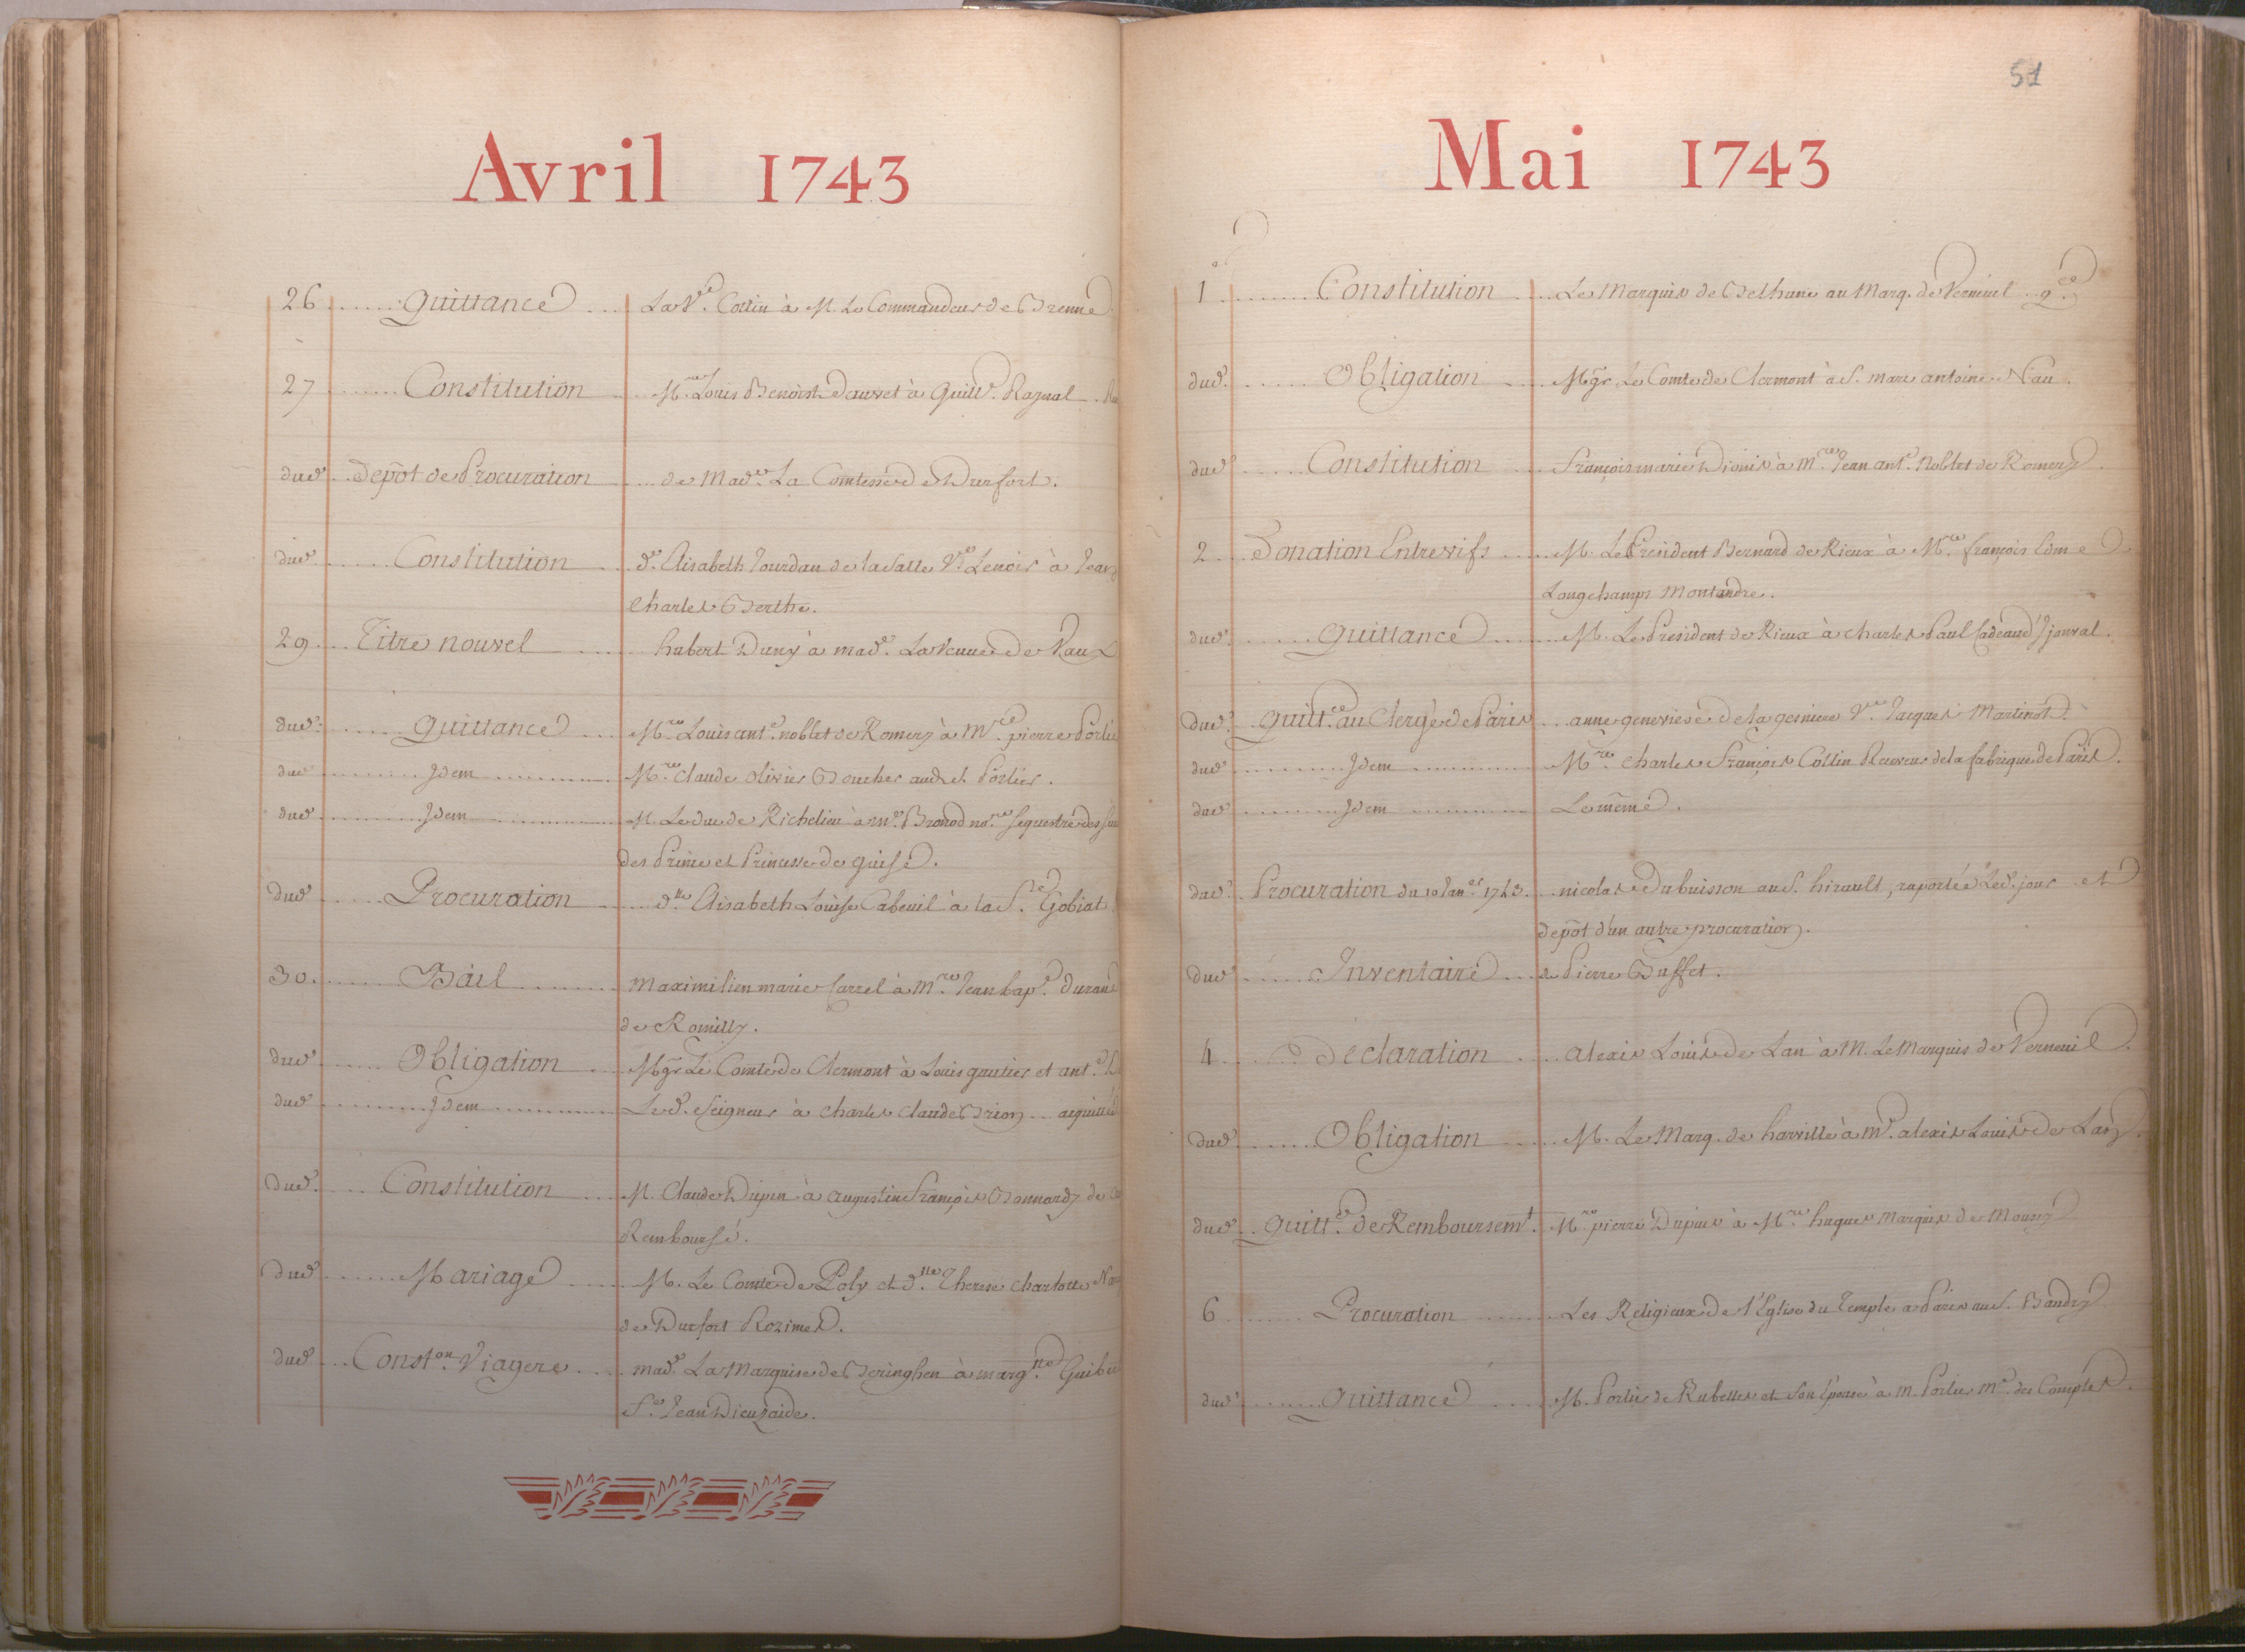 Avril 1743
26 Quittance La Ve. Cottin à M. Le Commandeur de Brenne
27 Constitution Mre. Louis Benoist Dauvet à Guille. Raynal
dud. Depôt de Procuration de Made. La Comtesse de Durfort.
dud. Constitution de. Elisabeth Jourdan de la Salle Ve. Lenoir à Jean
Charles Berthe.
29 Titre nouvel hubert Duny à made. La Veuve de Vaux
dud. Quittance Mre. Louis ant. noblet de Romery à Mre. pierre Portier
dud. Idem Mre. Claude olivier Boucher aud. S. Portier.
dud. Idem M. Le duc de Richelieu à me. Bronod nore. sequestre des
des Prince et Princesse de guise.
dud. Procuration dlle. Elisabeth Louise Cabeuil à la Se. Gobiat
30. Bail Maximilien marie Carrel à Mre. Jean bape. durand
de Romilly.
dud. Obligation Mgr. Le Comte de Clermont à Louis gautier et ant.
dud. Idem Led. Seigneur à Charles Claude Brion acquitté
dud. Constitution M. Claude Dupin à augustin François Bonnardy de
Remboursé.
dud. Mariage M. Le Comte de Poly et dlle. Therese Charlotte
de Durfort Rozimes.
dud. Conston. Viagere made. La Marquise de Beringhen à margte.
Se. Jean Dieuzaide.
51
Mai 1743
1er Constitution Le Marquis de Bethune au Marq. de Verneuil
dud. Obligation Mgr. Le Comte de Clermont à S. marc antoine Nau.
dud. Constitution François marie Dionis à Mre. Jean ant. Noblet de Romery.
2 Donation Entrevifs M. Le President Bernard de Rieux à Mre. françois Edme
Longchamps Montandre.
dud. Quittance M. Le President de Rieux à Charles Paul
dud. Quittce. au Clergé de Paris anne genevieve de la gesniere Vve. Jacques Martinot.
dud. Idem Mre. Charles François Collin Receveur de la fabrique de Paris.
dud. Idem Le même.
dud. Procuration du 10 Janer. 1743. nicolas Dubuisson au S. hirault, raportée led. jour et
depôt d'un autre procuration.
dud. Inventaire de Pierre Buffet.
4 Déclaration alexis Louis de Lan à M. Le Marquis de Verneuil.
dud. Obligation M. Le Marq. de harville à Mr. alexis Louis de Lan.
dud. Quittce. de Remboursemt. Mre pierre Dupuis à Mre. hugues Marquis de Moussy
6 Procuration Les Religieux de l'Eglise du Temple a Paris au S. Baudry
dud. Quittance M. Portier de Rubelles et Son Epouse à M. Portier Me. des Comptes.